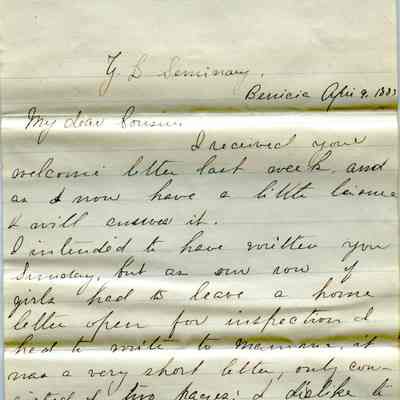 Y L Seminary.
Benicia Apri 9. 188
My dear Cousin
I received your
welcome letter last week, and
as I now have a little leisure
I will answer it.
I intended to have written you
Sunday, but as our row of
girls had to leave a home
letter open for inspection I
had to write to Mamma, it
was a very short letter, only con-
sisted of two pages; I dislike to